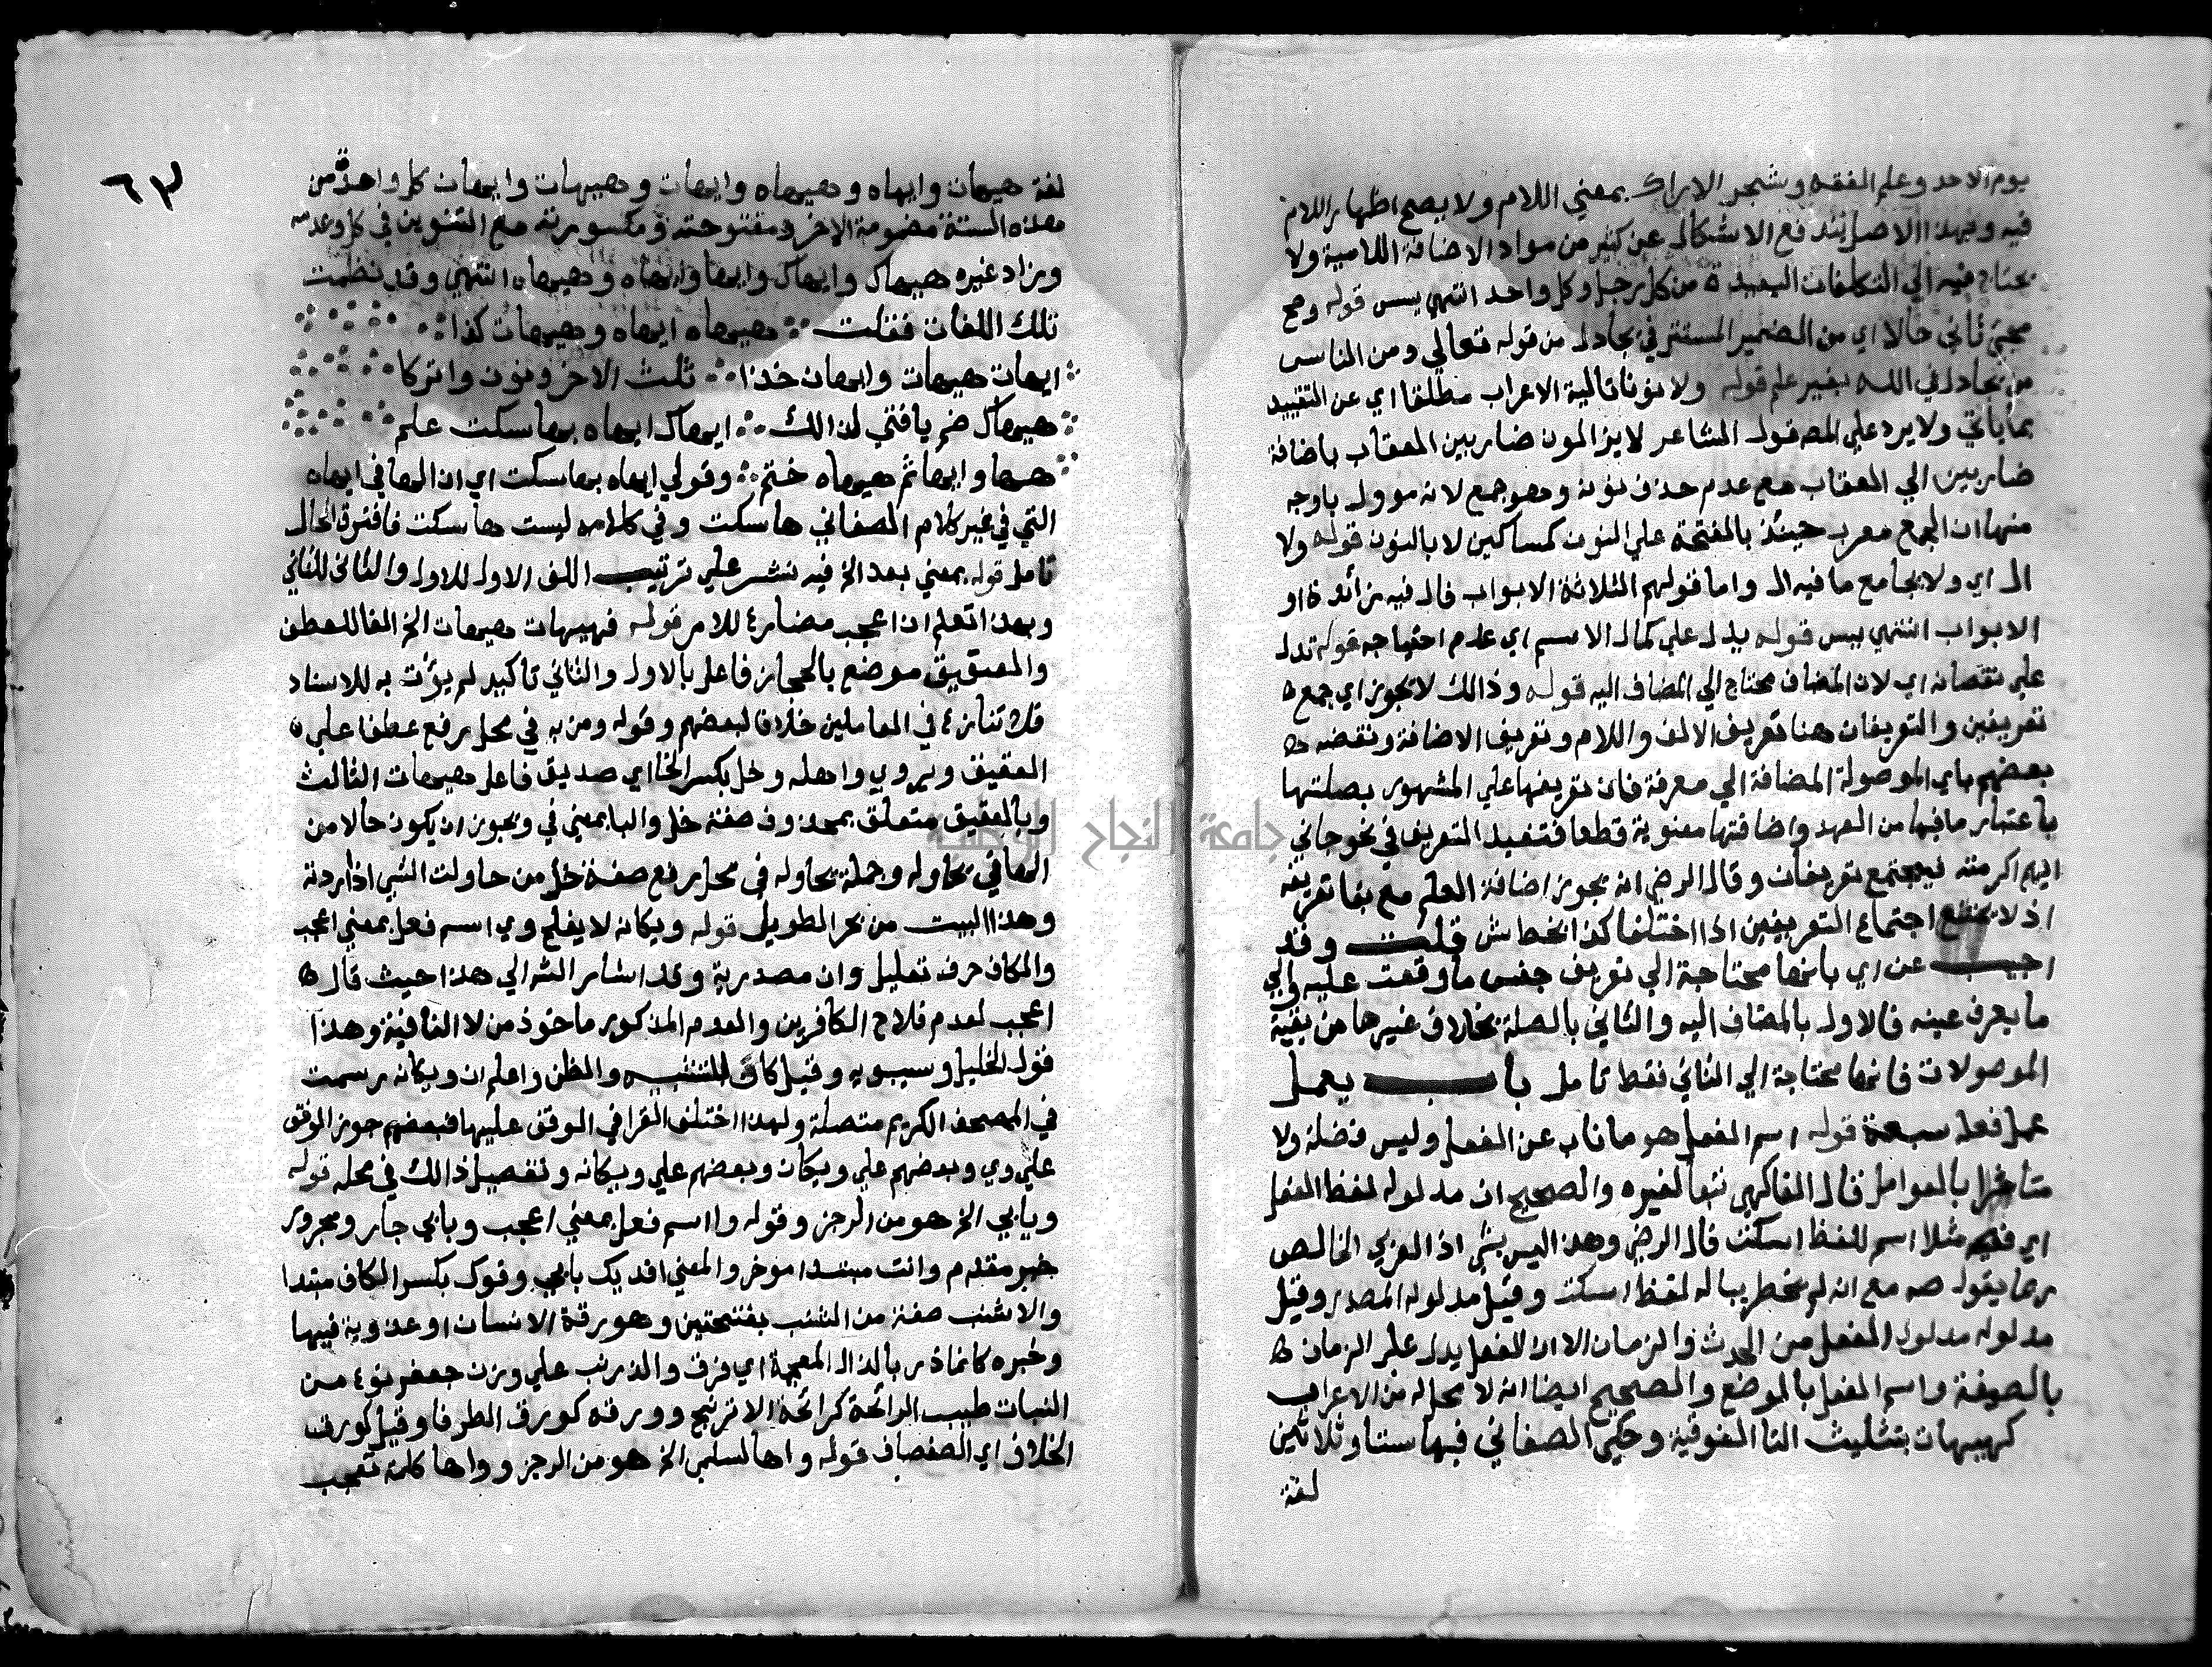 يوم الاحد وعلم الفقه وشجر الاراك بمعني اللام ولا يصح اظهار اللام
فيه وبهذا الاصل يندفع الاشكال عن كثير من مواد الاضافة اللامية ولا
يحتاج فيه الي التكلفات البعيدة من كل رجل وكل واحد انتهي يس قوله وصح
مجئ ثاني حالا اي من الضمير المستتر في يجادل من قوله تعالي ومن الناس
من يجادل في الله بغير علم قوله ولا نونا تالية الاعراب مطلقا اي عن التقييد
بما ياتي ولا يرد علي المصه قول الشاعر لا يزالون ضاربين القباب باضافة
ضاربين الي القباب مع عدم حذف نونه وهو جمع لانه موول باوجه
منها ان الجمع معرب حينئذ بالفتحة علي النون كمساكين لا بالنون قوله ولا
ال اي ولا يجامع ما فيه ال واما قولهم الثلاثة الابواب فال فيه زائدة او
الابواب انتهي يس قوله يدل علي كمال الاسم اي عدم احتياجه قوله تدل
علي نقصانه اي لان المضاف محتاج الي المضاف اليه قوله وذالك لا يجوز اي جمع
تعريفين والتعريفان هنا تعريف الالف واللام وتعريف الاضافة ونقضه
بعضهم باي الموصولة المضافة الي معرفة فان تعريفها علي المشهور بصلتها
باعتبار ما فيها من العهد واضافتها معنوية قطعا فتفيد التعريف في نحو جاني
ايهم اكرمته فيجتمع تعريفان وقال الرضي انه يجوز اضافة العلم مع بقا تعريفه
اذ لا يمتنع اجتماع التعريفين اذا اختلفا كذا بخط ش قلت وقد
اجيب عن اي بانها محتاجة الي تعريف جنس ما وقعت عليه والي
ما يعرف عينه فالاول بالمضاف اليه والثاني بالصلة بخلاف غيرها من بقية
الموصولات فانها محتاجة الي الثاني فقط تامل باب يعمل
عمل فعله سبعة قوله اسم الفعل هو ما ناب عن الفعل وليس فضلة ولا
متاثرا بالعوامل قال الفاكهي تبعا لغيره والصحيح ان مدلوله لفظ الفعل
اي فصه مثلا اسم للفظ اسكت قال الرضي وهذا ليس بشي اذ العربي الخالص
ربما يقول صه مع انه لم يخطر بباله لفظ اسكت وقيل مدلوله المصدر وقيل
مدلوله مدلول الفعل من الحدث والزمان الا ان الفعل يدل علي الزمان
بالصيغة واسم الفعل بالموضع والصحيح ايضا انه لا محل له من الاعراب
كهيهات بتثليث التا الفوقية وحكي الصغاني فيها ستا وثلاثين
لغة
٦٣
لغة هيهات وايهاه وهيهاه وايهات وهيهات وايهان كل واحدة من
هذه الستة مضمومة الاخر ومفتوحته ومكسورته مع التنوين في كل وعدمه
وزاد غيره هيهاك وايهاك وايها وايهاه وهيهاه انتهي وقد نظمت
تلك اللغات فقلت هيهاه ايهاه وهيهات كذا
ايهات هيهات وايهان خذا ثلث الاخر ونون واتركا
هيهاك ضم يافتي لذالك ايهاك ايهاه بهاسكت علم
هيها وايها ثم هيهاه ختم وقولي ايهاه بهاسكت اي ان الها في ايهاه
التي في غير كلام الصغاني هاسكت وفي كلامه ليست هاسكت فافترق الحال
تامل قوله بمعني بعد الخ فيه نشر علي ترتيب اللف الاول للاول والثاني للثاني
وبهذا تعلم ان اعجب مضارع لا امر قوله فهيهات هيهات الخ الفا للعطف
والعقيق موضع بالحجاز فاعل بالاول والثاني تاكيد لم يؤت به للاسناد
فلا تنازع في العاملين خلافا لبعضهم وقوله ومن به في محل رفع عطفا علي
العقيق ويروي واهله وخل بكسر الخا اي صديق فاعل هيهات الثالث
وبالعقيق متعلق بمحذوف صفة خل والبا بمعني في ويجوز ان يكون حالا من
الها في نحاوله وجملة نحاوله في محل رفع صفة خل من حاولت الشي اذا اردته
وهذا البيت من بحر الطويل قوله ويكانه لا يفلح وي اسم فعل بمعني اعجب
والكاف حرف تعليل وان مصدرية وقد اشار الشه الي هذا حيث قال
اعجب لعدم فلاح الكافرين والعدم المذكور ماخوذ من لا النافية وهذا
قول الخليل وسيبويه وقيل كان للتشبيه والظن واعلم ان ويكانه رسمت
في المصحف الكريم متصلة ولهذا اختلف القرا في الوقف عليها فبعضهم جوز الوقف
علي وي وبعضهم علي ويكان وبعضهم علي ويكانه وتفصيل ذالك في محله قوله
وبابي الخ هو من الرجز وقوله وا اسم فعل بمعني اعجب وبابي جار ومجرور
خبر مقدم وانت مبتدا موخر والمعني افديك بابي وفوك بكسر الكاف مبتدا
والاشنب صفة من الشنب بفتحتين وهو رقة الاسنان او عذوبة فيها
وخبره كانما ذر بالذال المعجمة اي فرق والذرنب علي وزن جعفر نوع من
النبات طيب الرائحة كرائحة الاترنج وورقه كورق الطرفا وقيل كورق
الخلاف اي الصفصاف قوله واها لسلمي الخ هو من الرجز وواها كلمة تعجب
جامعة النجاح الوطنية